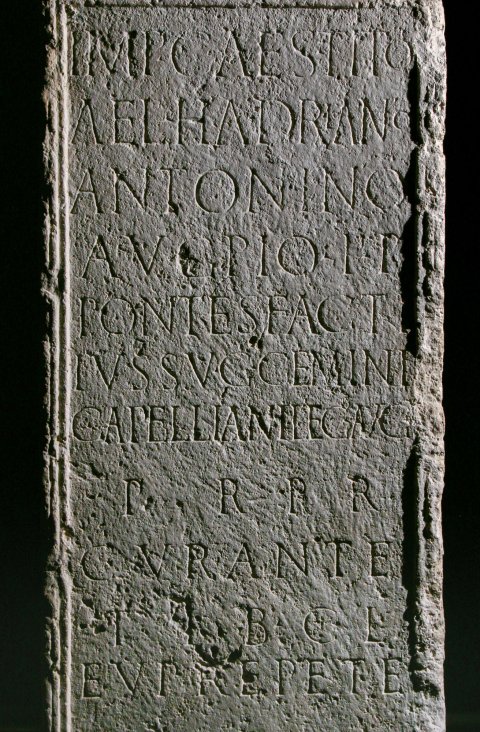 IMP·CAES·TITO
AEL·HADRIANO
ANTONINO
AVG·PIO·P·P
PONTES·FACTI
IVSSV·G·GEMINI
CAPELLIANI·LEG·AVG
P R P R
CVRANTE
T I B C L
EVPREPETE